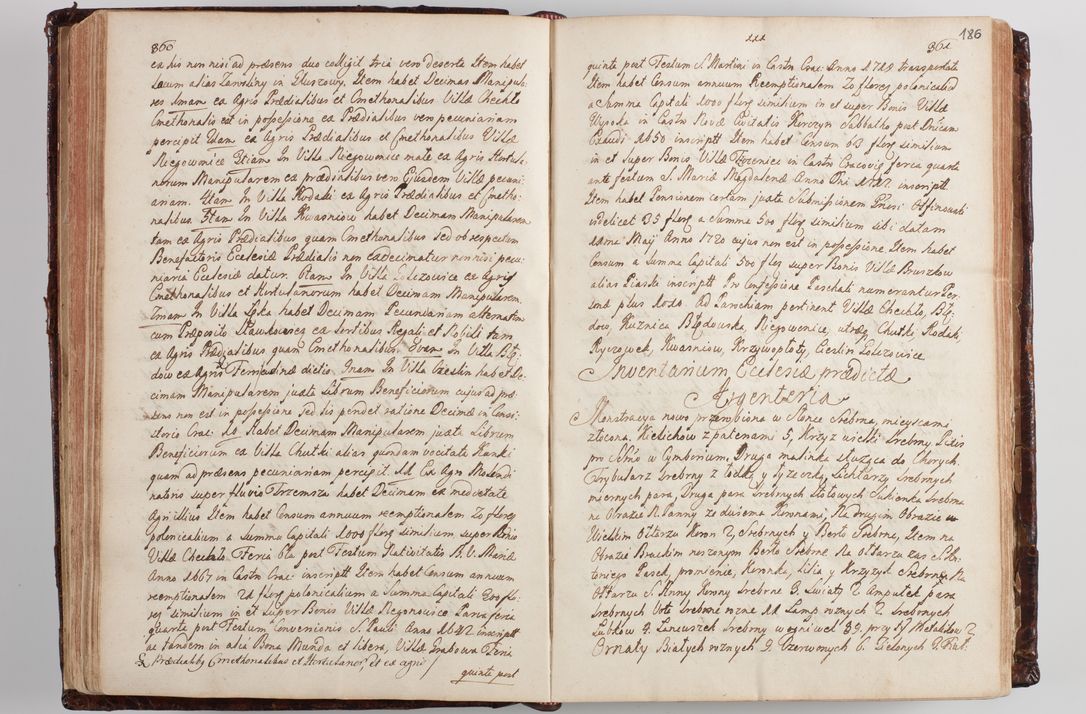 360
ea his non nisi ad præsens duo colligit tria vero deserta Item habet
Laeum alias Zarosliny in Gluszowy. Item habet Decimas Manipula-
res Imam ex Agris Prædialibus et Cmethonalibus Villæ Chechło
Cmethonalis est in possessione ex Prædialibus vero pecuniariam
percipit IIdam ex Agris Prædialibus et Cmethonalibus Villæ
Niegownice IIIam In Villa Niegownice male ex Agris Hortula-
norum Manipularem ex prædialibus vero Ejusdem Villæ pecuni-
ariam. In Villa Rodaki ex Agris Prædialibus et Cmetho-
nalibus In Villa Kwasniow habet Decimam Manipularem
tam ex Agris Prædialibus quam Cmethonalibus Sed ob respectum
Benefactoris Ecclesiæ Prædialis non exdecimatur non nisi pecu-
niaria Ecclesiæ datur. In Villa Golczowice ex Agris
Cmethonalibus et Hortulanorum habet Decimam Manipularem.
In Villa Łęka habet Decimam Pecuniariam alternatim
cum Præposito Sławkoviensi ex Sortibus Regali et Nobili tam
ex Agris Prædialibus quam Cmethonalibus. In Villa Błę-
dow ex Agris dictis. In Villa Czeslin habet De-
cimam Manipularem juxta Librum Beneficiorum cujus ad præ-
sens non est in possessione sed lis pendet ratione Decimæ in Consi-
storio Crac: Habet Decimam Manipularem juxta Librum
Beneficiorum ex Villa Chutki alias quondam vocitate Hanki
quam ad præsens pecuniariam percipit. Ex Agro Molendi-
natorio super fluvio Trzemsza habet Decimam ex medietate
Agri illius Item habet Censum annuum reemptionalem 70 flor
polonicalium a Summa Capitali 1000 flor similium super Bonis
Villæ Chechlo. Feria 6ta post Festum Nativitatis B. V. Mariæ
Anno 1667 in Castro Crac: inscriptt Item habet Censum annuum
reemptionalem 21 flor polonicalium a Summa Capitali 300 flo-
res similium in et super Bonis Villæ Negonovice Parva feria
quarta post Festum Conversionis S. Pauli Anno 1642 inscriptt
ac tandem in alia Bona Munda et libera, Villæ Grabowa Feria
Prædialib9 Cmethonalibus et Hortulanor, et ex agris
quinta post

186
361
quinta post Festum S. Martini in Castro Crac: Anno 1718 transportatt
Item habet Censum annuum Reemptionalem 70 flores polonicaliu
a Summa Capitali 1000 flor similium in et super Bonis Villæ
Wysoka in Castro Novæ Civitatis Korczyn Sabbatho post Dnicam
Exaudi 1650 inscriptt Item habet Censum 63 flor similium
in et super Bonis Villæ Trzenici in Castro Cracovie feria quarta
ante festum S. Mariæ Magdalenæ Anno Dni 1712 inscriptt
Item habet Pensionem certam juxta Submissionem Pnesi
videlicet 35 flor a Summa 500 flor similium sibi datam
Maij Anno 1720 cujus non est in possessione Item habet
Censum a Summa Capitali 500 flor super Bonis Villæ Bruszkow
alias Piaski inscriptt In Confessione Paschali numerantur Per-
sonæ plus 1020. Ad Parochiam pertinent Villæ Chechlo, Błę-
dow, Kuznica Błędowska, Niegownice, utræq Chutki, Rodaki,
Ryczowek, Kwasniow, Krzywopłoty, Cieslin Golczowice
Inventarium Ecclesiæ prædictæ
Argenteria
Monstracya nowo przerobiona w Słonce Srebrna, mieyscami
złocona. Kielichow z patenami 5, Krzyz wielki Srebrny Pixis
pro SSmo w Cymborium, Druga malinka słuząca do Chorych.
Trybularz Srebrny z łodką y łyzeczką, Lichtarzy Srebrnych
miernych para, Druga para Srebrnych Stołowych Sukienka Srebrna
na Obrazie N. Panny ze dwiema Koronami, Na drugim Obrazie w
Wielkim Ołtarzu Koron 2 Srebrnych y Berło Srebrne, Item na
Obrazie Brackim noszonym Berło Srebrne Na ołtarzu zas Szka-
plerznego Pasek, promienie, Koronka, Lilia y Krzyzyk Srebrny Na
Ołtarzu S. Anny Korony Srebrne 3. Swiaty 2 Ampułek para
Srebrnych Vota Srebrne rozne 11 Lamp roznych 2 Srebrnych
Kubkow 3. Lancuszek Srebrny w ogniwek 39. przy ty Metalikow 2
Ornaty Białych roznych 9 Czerwonych 6. Zielonych 3. Fial: